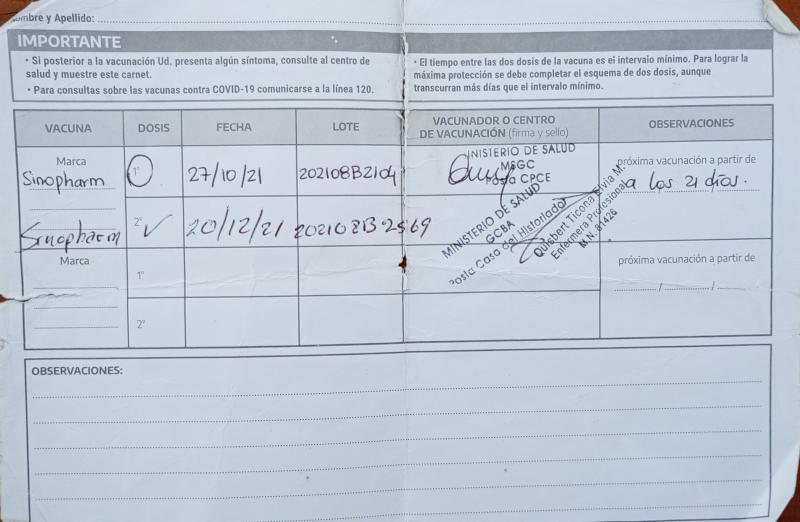 Nombre y Apellido:
IMPORTANTE
• Si posterior a la vacunación Ud. presenta algún síntoma, consulte al centro de
salud y muestre este carnet.
• Para consultas sobre las vacunas contra COVID-19 comunicarse a la línea 120.
• El tiempo entre las dos dosis de la vacuna es el intervalo mínimo. Para lograr la
máxima protección se debe completar el esquema de dos dosis, aunque
transcurran más días que el intervalo mínimo.
VACUNA DOSIS FECHA LOTE VACUNADOR O CENTRO DE VACUNACIÓN (firma y sello) OBSERVACIONES
Marca
Sinopharm 1° 27/10/21 202108B2104
MINISTERIO DE SALUD
MSGC
Posta CPCE
próxima vacunación a partir de
a los 21 días.
Sinopharm 2° 20/12/21 202108B2569
MINISTERIO DE SALUD
GCBA
Posta Casa del Historiador
Quisbert Ticona Silvia M.
Enfermera Profesional
M.N. 81426
Marca
1°
próxima vacunación a partir de
/ /
2°
OBSERVACIONES: